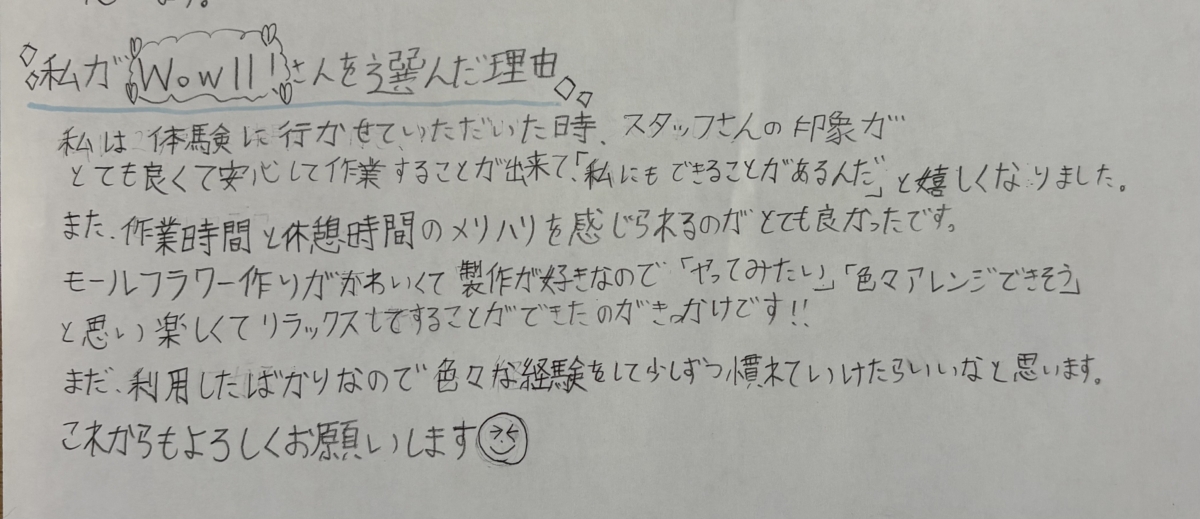 私が Wow!! さんを選んだ理由
私は体験に行かせていただいた時、スタッフさんの印象が
とても良くて安心して作業することが出来て、「私にもできることがあるんだ」と嬉しくなりました。
また、作業時間と休憩時間のメリハリを感じられるのがとても良かったです。
モールフラワー作りがかわいくて製作が好きなので「やってみたい」「色々アレンジできそう」
と思い楽しくてリラックスしてすることができたのがきっかけです!!
まだ、利用したばかりなので色々な経験をして少しずつ慣れていけたらいいなと思います。
これからもよろしくお願いします